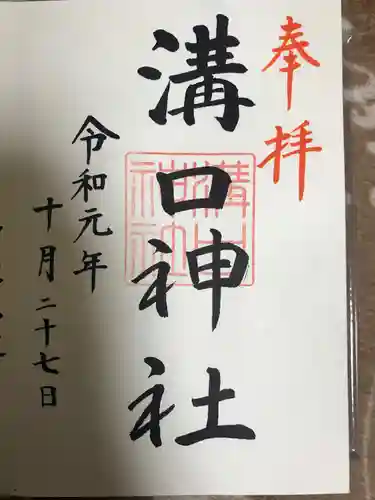 奉拝
溝口神社
溝口
神社
令和元年
十月二十七日